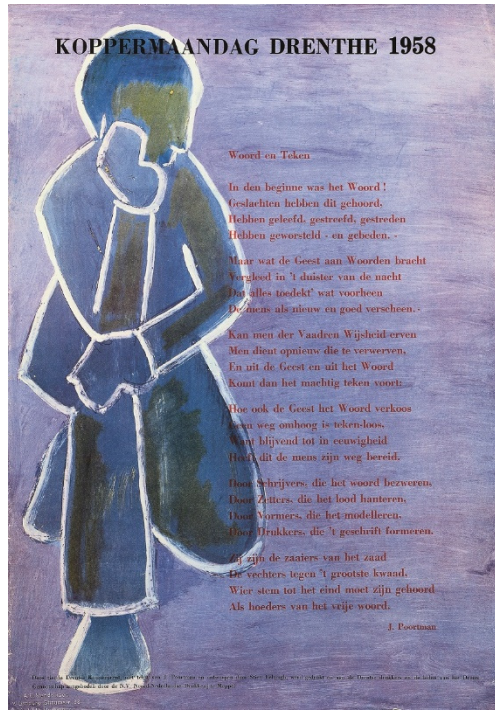 KOPPERMAANDAG DRENTHE 1958
Woord en Teken
In den beginne was het Woord!
Geslachten hebben dit gehoord,
Hebben geleefd, gestreefd, gestreden
Hebben geworsteld - en gebeden. -
Maar wat de Geest aan Woorden bracht
Vergleed in 't duister van de nacht
Dat alles toedekt' wat voorheen
De mens als nieuw en goed verscheen. -
Kan men der Vaadren Wijsheid erven
Men dient opnieuw die te verwerven,
En uit de Geest en uit het Woord
Komt dan het machtig teken voort:
Hoe ook de Geest het Woord verkoos
Geen weg omhoog is teken-loos,
Want blijvend tot in eeuwigheid
Heeft dit de mens zijn weg bereid.
Door Schrijvers, die het woord bezweren,
Door Zetters, die het lood hanteren,
Door Vormers, die het modelleren,
Door Drukkers, die 't geschrift formeren.
Zij zijn de zaaiers van het zaad
De vechters tegen 't grootste kwaad,
Wier stem tot het eind moet zijn gehoord
Als hoeders van het vrije woord.
J. Poortman